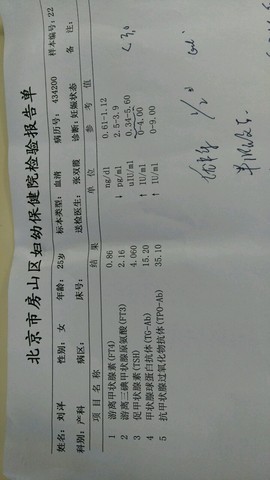 北京市房山区妇幼保健院检验报告单
样本编号: 22
姓名: 刘洋 性别: 女 年龄: 25岁 标本类型: 血清 病历号: 434200
科别: 产科 病区: 床号: 送检医生: 张双霞 诊断: 妊娠状态 备 注:
项 目 名 称 结 果 单 位 参 考 值
1 游离甲状腺素(FT4) 0.86 ng/dl 0.61-1.12
2 游离三碘甲状腺原氨酸(FT3) 2.16 ↓ pg/ml 2.5-3.9
3 促甲状腺素(TSH) 4.060 uIU/ml 0.34-5.60
4 甲状腺球蛋白抗体(TG-Ab) 15.20 ↑ IU/ml 0-4.00
5 抗甲状腺过氧化物抗体(TPO-Ab) 35.10 ↑ IU/ml 0-9.00
< 3.0